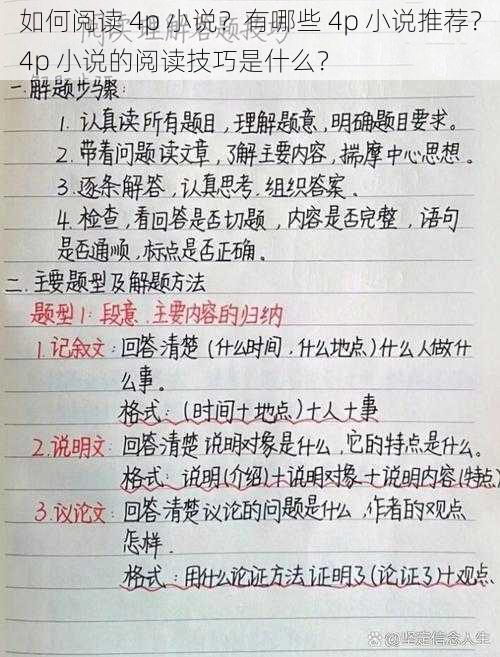 如何阅读 4p 小说？有哪些 4p 小说推荐？
4p 小说的阅读技巧是什么？
阅读理解答题技巧
一.解题步骤:
1. 认真读所有题目,理解题意,明确题目要求。
2. 带着问题读文章,了解主要内容,揣摩中心思想。
3. 逐条解答,认真思考.组织答案。
4. 检查,看回答是否切题,内容是否完整,语句
是否通顺,标点是否正确。
二.主要题型及解题方法
题型1:段意.主要内容的归纳
1.记叙文:回答清楚(什么时间.什么地点)什么人做什
么事。
格式:(时间+地点)+人+事
2.说明文:回答清楚说明对象是什么,它的特点是什么。
格式:说明(介绍)+说明对象+说明内容(特点)
3.议论文:回答清楚议论的问题是什么,作者的观点
怎样.
格式:用什么论证方法证明了(论证了)+观点
百家号@坚定信念人生